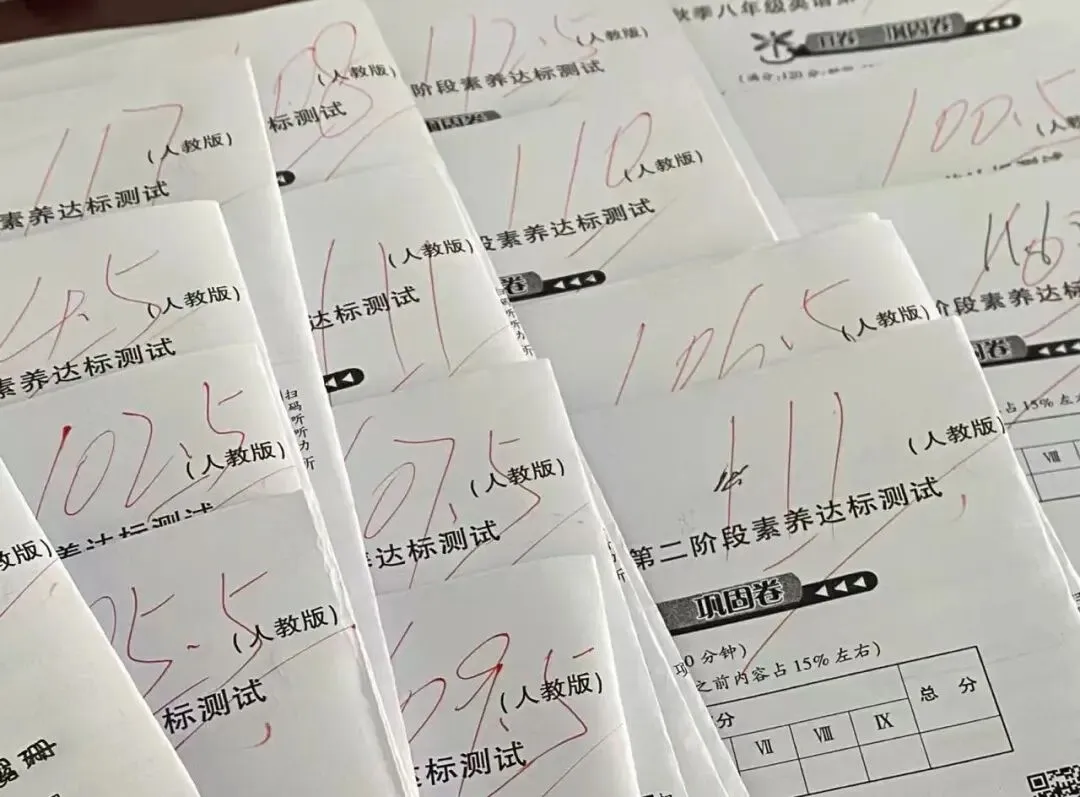 117
(人教版)
素养达标测试
108
(人教版)
标测试
112.5
(人教版)
阶段素养达标测试
巩固卷
秋季八年级英语第
100.5
(人教
110
(人教版)
段素养达标测试
固卷
4.5
(人教版)
素养达标测试
111
(人教版)
达标测试
扫码听听力
106.5
(人教版)
阶段素养达标
固卷
占15%左右
Ⅷ
102.5
(人教版)
养达标测试
07.5
(人教版)
达标测试
111
(人教版)
第二阶段素养达标测试
巩固卷
0分钟)
之前内容占15%左右)
分
总 分
Ⅶ
Ⅷ
Ⅸ
教版)
05.5
(人教版)
标测试
09.5
(人教版)
达标测试